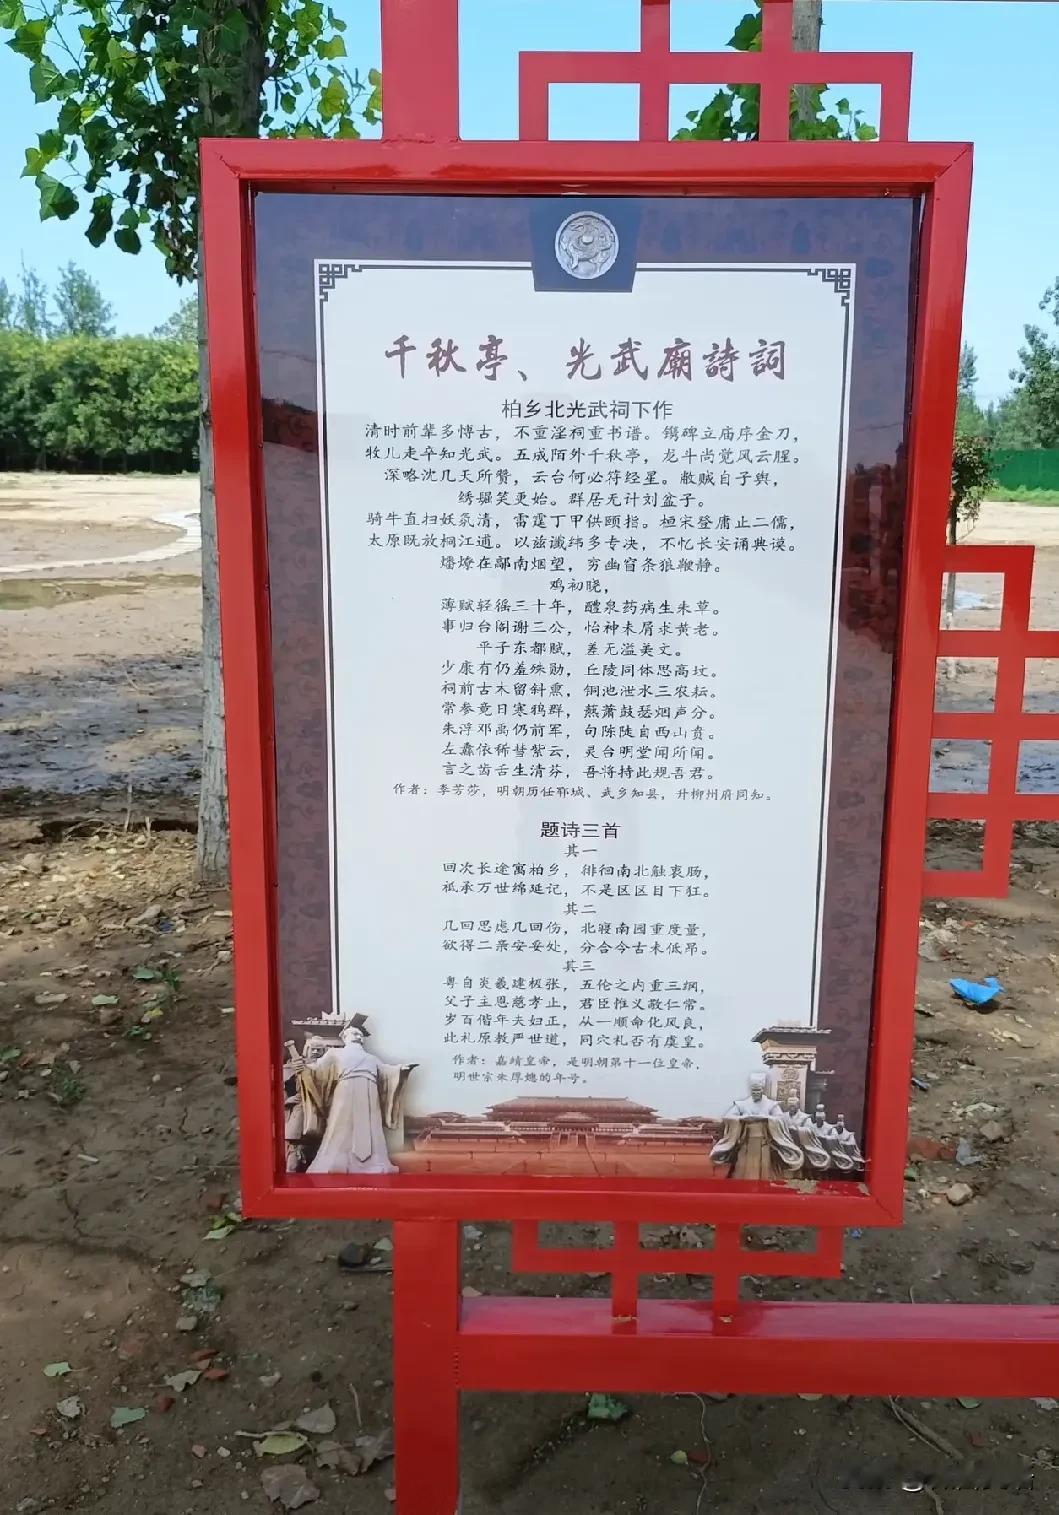 千秋亭、光武廟詩詞
柏乡北光武祠下作
清时前辈多愽古，不重淫祠重书谱。镌碑立庙序金刀，
牧儿走卒知光武。五成陌外千秋亭，龙斗尚觉风云腥。
深略沈几天所赞，云台何必符经星。敝贼自子舆，
绣𧝑笑更始。群居无计刘盆子。
骑牛直扫妖氛清，雷霆丁甲供颐指。桓宋登庸止二儒，
太原既放桐江道。以兹谶纬多专决，不忆长安诵典谟。
燔燎在鄗南烟望，穷幽窅条狼鞭静。
鸡初晓，
薄赋轻徭三十年，醴泉药病生朱草。
事归台阁谢三公，怡神未屑求黄老。
平子东都赋，差无溢美文。
少康有仍羞殊勋，丘陵同体思高坟。
祠前古木留斜熏，铜池泄水三农耘。
常参竟日寒鸦群，爇萧鼓瑟烟声分。
朱浮邓禹仍前军，句陈陡自西山贲。
左纛依稀彗紫云，灵台明堂闻所闻。
言之齿舌生清芬，吾将持此规吾君。
作者：李芳莎，明朝历任郓城、武乡知县，升柳州府同知。
题诗三首
其一
回次长途寓柏乡，徘徊南北触衷肠，
祗承万世绵延记，不是区区目下狂。
其二
几回思虑几回伤，北寝南园重度量，
欲得二亲安妥处，分合今古未低昂。
其三
粤自炎羲建极张，五伦之内重三纲，
父子主恩慈孝止，君臣惟义敬仁常。
岁百偕年夫妇正，从一顺命化风良，
此礼原教严世道，同穴礼否有虞皇。
作者：嘉靖皇帝，是明朝第十一位皇帝，
明世宗朱厚熜的年号。